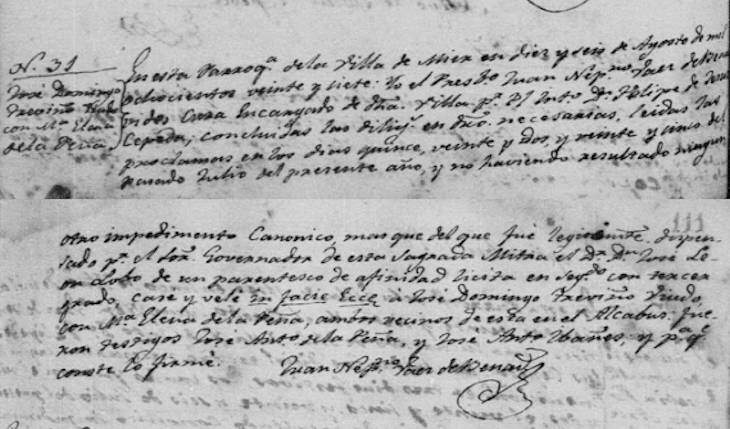 N. 31
José Domingo
Treviño Viudo
con Ma. Elena
de la Peña,
En esta Parroqa. de la Villa de Mier en diez y seis de Agosto de mil
ochocientos veinte y siete: Yo el Presbo. Juan Nepno. Yaer de Bena
vides Cura Encargado de dha. Villa pr. el Cura Dn. Felipe de Jesus
Cepeda; concluidas las dilijs. en dro. necesarias, leidas las
proclamas en los dias quince, veinte y dos, y veinte y nueve del
pasado Julio del presente año, y no haviendo resultado ningun
111
otro impedimento Canonico, mas que del que fué legitimte. dispen-
sado pr. el Sor. Governador de esta Sagrada Mitra el Dr. Dn. José Le-
on Lobo de un parentesco de afinidad licita en segdo. con tercer
grado, case y velé in facie Ecce. à José Domingo Treviño Viudo,
con Ma. Elena de la Peña, ambos vecinos de esta en el Alcabus. fue-
ron testigos José Anto. de la Peña, y José Anto. Ibañes, y pa. qe.
conste lo firmé.
Juan Nepno. Yaer de Benavs.